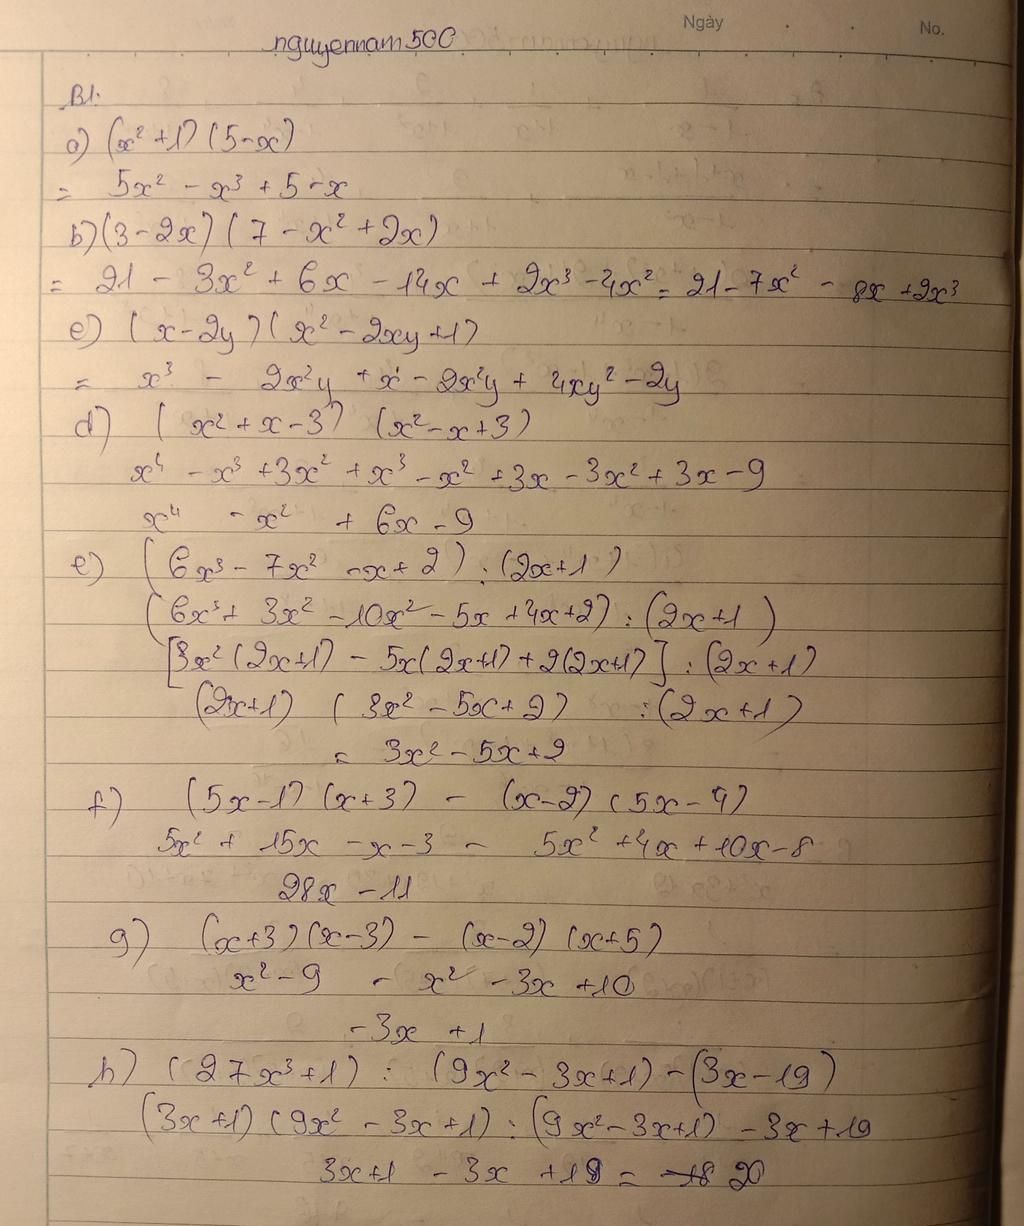 Ngày
No.
nguyennam500
B1:
a) (x² + 1) (5 - x)
= 5x² - x³ + 5 - x
b) (3 - 2x) (7 - x² + 2x)
= 21 - 3x² + 6x - 14x + 2x³ - 4x² = 21 - 7x² - 8x + 2x³
c) (x - 2y) (x² - 2xy + 1)
= x³ - 2x²y + x - 2x²y + 4xy² - 2y
d) (x² + x - 3) (x² - x + 3)
x⁴ - x³ + 3x² + x³ - x² + 3x - 3x² + 3x - 9
x⁴ - x² + 6x - 9
e) (6x³ - 7x² - x + 2) : (2x + 1)
(6x³ + 3x² - 10x² - 5x + 4x + 2) : (2x + 1)
[3x² (2x + 1) - 5x (2x + 1) + 2(2x + 1)] : (2x + 1)
(2x + 1) (3x² - 5x + 2) : (2x + 1)
= 3x² - 5x + 2
f) (5x - 1) (x + 3) - (x - 2) (5x - 4)
5x² + 15x - x - 3 - 5x² + 4x + 10x - 8
28x - 11
g) (x + 3) (x - 3) - (x - 2) (x + 5)
x² - 9 - x² - 3x + 10
- 3x + 1
h) (27x³ + 1) : (9x² - 3x + 1) - (3x - 19)
(3x + 1) (9x² - 3x + 1) : (9x² - 3x + 1) - 3x + 19
3x + 1 - 3x + 19 = 20